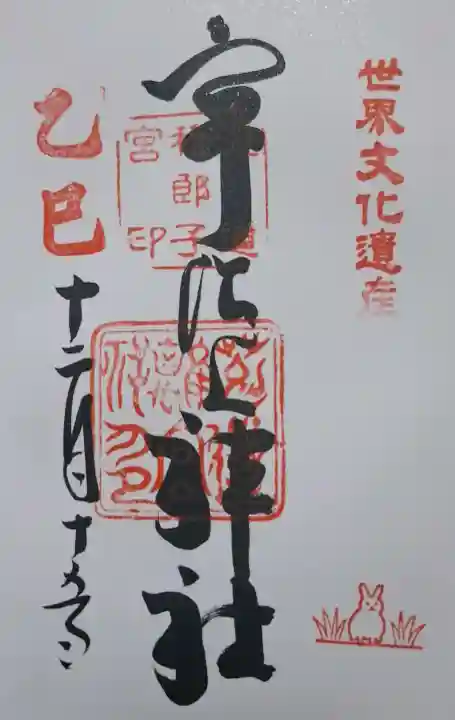 世界文化遺産
宇治上神社
菟道
稚郎子
宮印
乙巳
十二月十五日